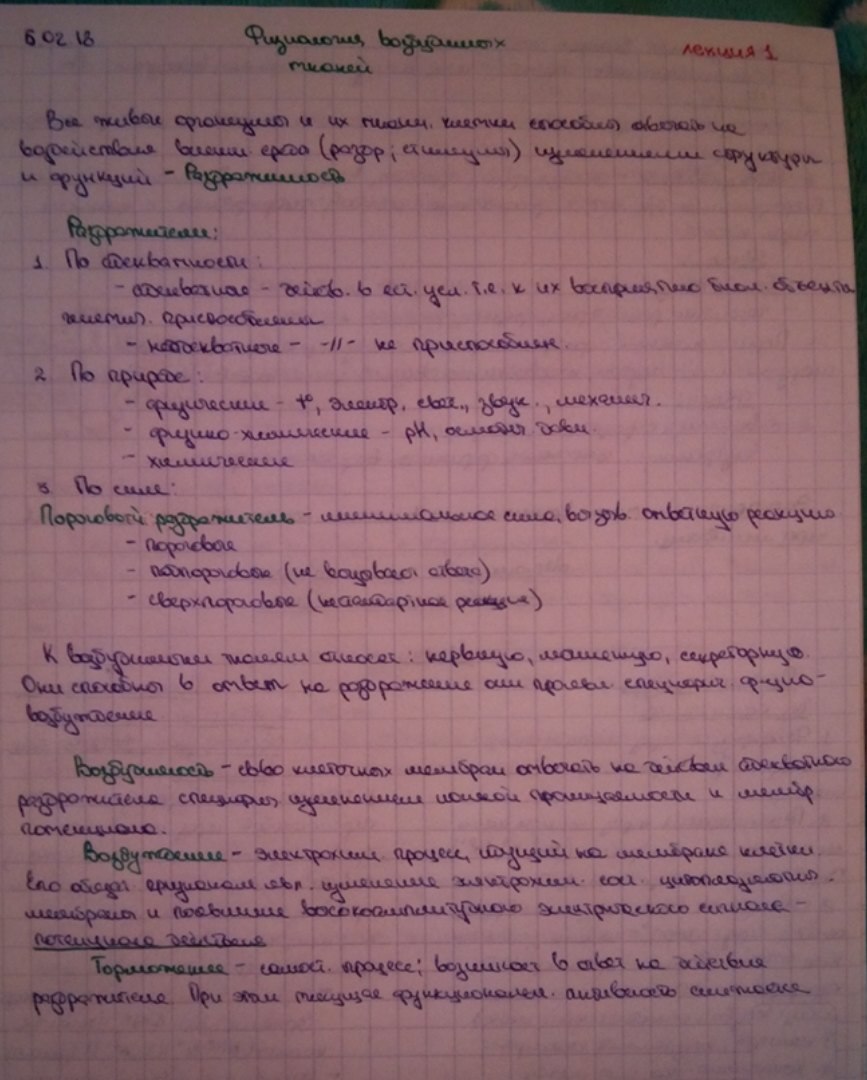 6.02.18 Физиология возбудимых лекция 1
тканей
Все живые организмы и их ткани, клетки способны отвечать на
воздействия внешн. среды (раздр; стимулы) изменением структуры
и функций - Раздражимость
Раздражители:
1. По адекватности:
- адекватные - действ. в ест. усл. т.е. к их восприятию биол. объекта
приспособлены
- неадекватные - -//- не приспособлен.
2. По природе:
- физические - t°, электр, свет., звук., механич.
- физико-химические - pH, осмотич давл.
- химические
3 По силе:
Пороговой раздражитель - минимальная сила, вызыв. ответную реакцию
- пороговые
- подпороговые (не вызывают ответа)
- сверхпороговые (нестандартная реакция)
К возбудимым тканям относят: нервную, мышечную, секреторную.
Они способны в ответ на раздражение они проявл. специфич. физио-
возбуждение
Возбудимость - св-во клеточных мембран отвечать на действия адекватного
раздражителя специфич изменением ионной проницаемости и мембр.
потенциала.
Возбуждение - электрохим. процесс, идущий на мембране клетки.
Его функционал явл. изменение электрохим. сост. цитоплазматич.
мембраны и появление высокоамплитудного электрического сигнала -
потенциала действия
Торможение - самост. процесс; возникает в ответ на действия
раздражителя. При этом текущая функциональн. активность снижается